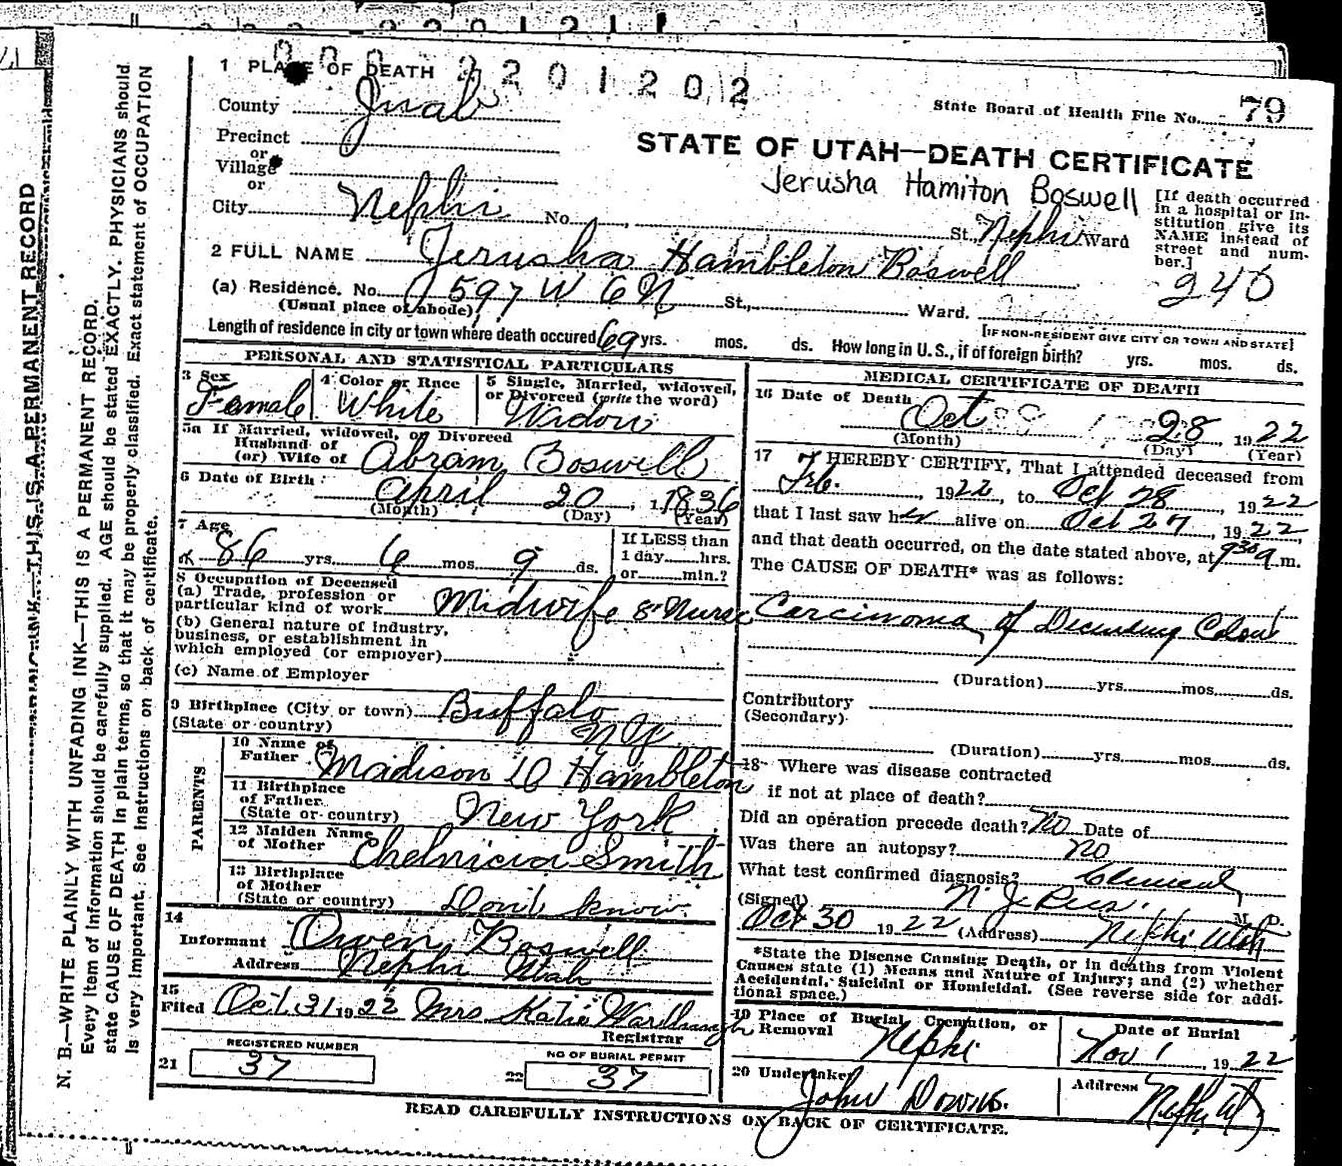 2201202
1 PLACE OF DEATH
County Juab
State Board of Health File No. 79
Precinct
or
Village
or
STATE OF UTAH—DEATH CERTIFICATE
Jerusha Hamiton Boswell
City Nephi No. St. Nephi Ward
[If death occurred in a hospital or institution give its NAME instead of street and number.]
2 FULL NAME Jerusha Hambleton Boswell
240
(a) Residence. No. 597 W 6 N St., Ward.
(Usual place of abode)
[IF NON-RESIDENT GIVE CITY OR TOWN AND STATE]
Length of residence in city or town where death occured 69 yrs. mos. ds. How long in U. S., if of foreign birth? yrs. mos. ds.
PERSONAL AND STATISTICAL PARTICULARS
3 Sex
Female
4 Color or Race
White
5 Single, Married, widowed,
or Divorced (write the word)
Widow
5a If Married, widowed, or Divorced
Husband of
(or) Wife of Abram Boswell
6 Date of Birth April 20, 1836
(Month) (Day) (Year)
7 Age
86 yrs. 6 mos. 9 ds.
If LESS than
1 day hrs.
or min.?
8 Occupation of Deceased
(a) Trade, profession or
particular kind of work Midwife & Nurse
(b) General nature of industry,
business, or establishment in
which employed (or employer)
(c) Name of Employer
9 Birthplace (City or town) Buffalo
(State or country) N Y
PARENTS
10 Name of
Father Madison D Hambleton
11 Birthplace
of Father
(State or country) New York
12 Maiden Name
of Mother Chelnicia Smith
13 Birthplace
of Mother
(State or country) Don't know
14
Informant Owen Boswell
Address Nephi Utah
15
Filed Oct 31 1922 Mrs Katie
Registrar
REGISTERED NUMBER
21 37
NO OF BURIAL PERMIT
22 37
MEDICAL CERTIFICATE OF DEATH
16 Date of Death
Oct 28, 1922
(Month) (Day) (Year)
17 I HEREBY CERTIFY, That I attended deceased from
Feb. 1922, to Oct 28, 1922
that I last saw her alive on Oct 27, 1922
and that death occurred, on the date stated above, at 9 30 a m.
The CAUSE OF DEATH* was as follows:
Carcinoma of Decending Colon
(Duration) yrs. mos. ds.
Contributory
(Secondary)
(Duration) yrs. mos. ds.
18 Where was disease contracted
if not at place of death?
Did an operation precede death? No Date of
Was there an autopsy? no
What test confirmed diagnosis? Clinical
(Signed) N. J. Rees. M. D.
Oct 30 1922 (Address) Nephi Utah
*State the Disease Causing Death, or in deaths from Violent
Causes state (1) Means and Nature of Injury; and (2) whether
Accidental, Suicidal or Homicidal. (See reverse side for addi-
tional space.)
19 Place of Burial, Cremation, or
Removal Nephi
Date of Burial
Nov 1, 1922
20 Undertaker
John Downs.
Address
Nephi Ut
READ CAREFULLY INSTRUCTIONS ON BACK OF CERTIFICATE.
THIS IS A PERMANENT RECORD
N. B.—WRITE PLAINLY WITH UNFADING INK—THIS IS A PERMANENT RECORD.
Every item of information should be carefully supplied. AGE should be stated EXACTLY. PHYSICIANS should
state CAUSE OF DEATH in plain terms, so that it may be properly classified. Exact statement of OCCUPATION
is very important. See instructions on back of certificate.